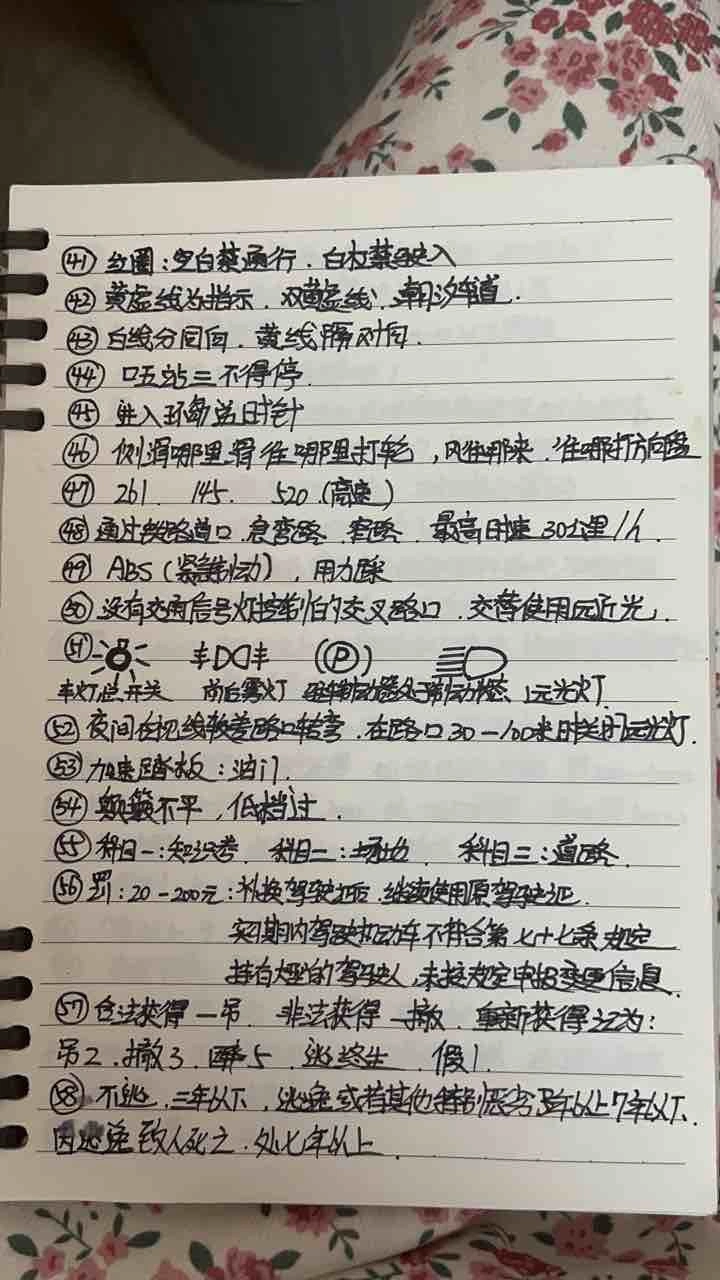 ㊶ 红圈:空白禁通行．白杠禁驶入
㊷ 黄虚线为指示．双黄虚线、潮汐车道．
㊸ 白线分同向．黄线隔对向．
㊹ 口五站三不得停．
㊺ 进入环岛逆时针
㊻ 侧滑哪里滑往哪里打轮，风往哪来．往哪打方向盘
㊼ 261． 145． 520（高速）
㊽ 通过铁路道口．急弯路．窄路．最高时速30公里/h．
㊾ ABS（紧急制动），用力踩
㊿ 没有交通信号灯控制的交叉路口．交替使用远近光．
51 P
车灯总开关 前后雾灯 处于制动状态、远光灯．
52 夜间在视线较差路口转弯．在路口30－100米时关闭远光灯．
53 加速踏板：油门．
54 颠簸不平，低档过．
55 科目一:知识考． 科目二:场地． 科目三:道路．
56 罚:20－200元:补换驾驶证后．继续使用原驾驶证．
实习期内驾驶机动车不符合第七十七条规定
持有大型的驾驶人，未按规定申报变更信息．
57 合法获得一吊． 非法获得一撤．重新获得证为:
吊2．撤3．醉5．逃终生． 假1．
58 不逃．三年以下．逃逸或者其他特别恶劣3年以上7年以下．
因逃逸致人死亡．处七年以上．